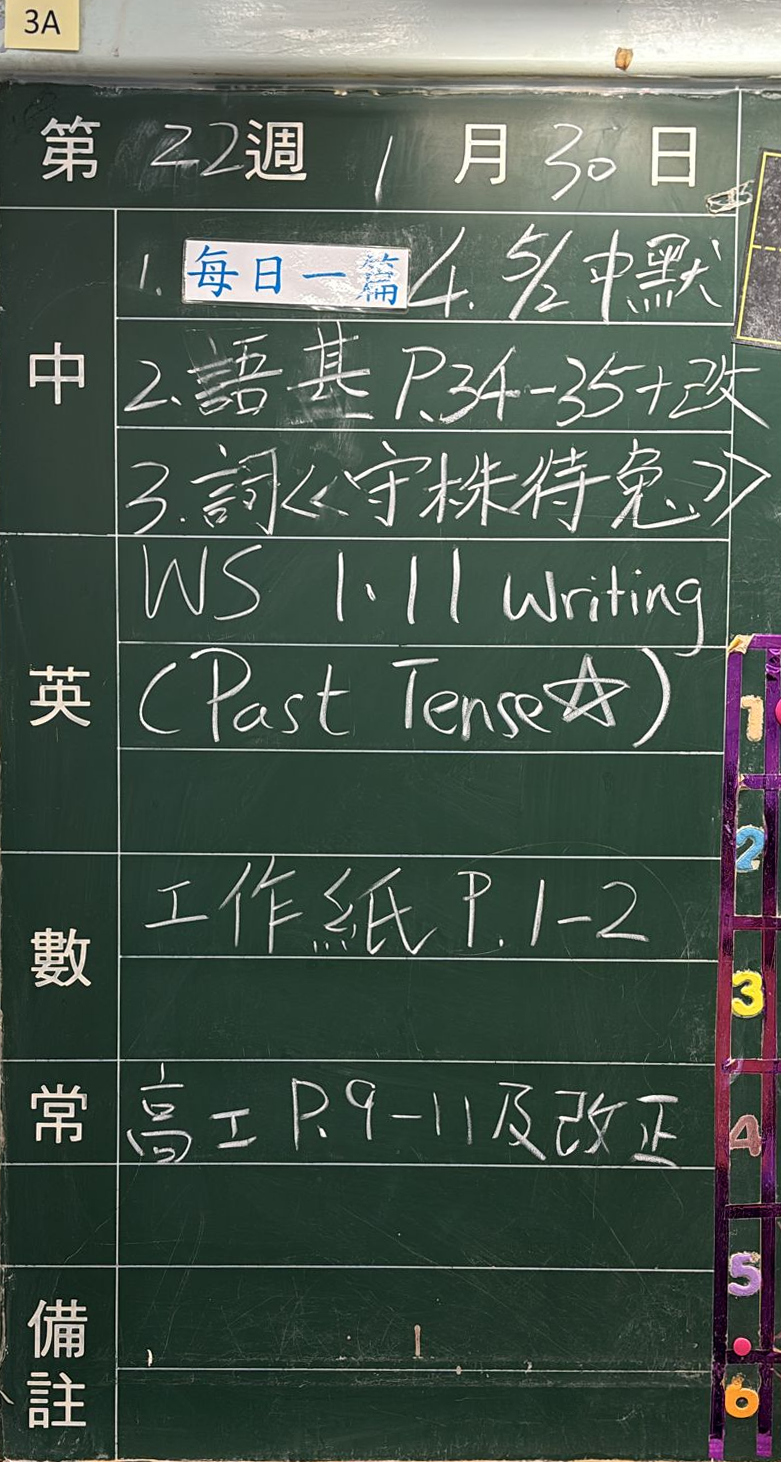 3A
第 22週 1月30日
中
1. 每日一篇 4. 5/2 中默
2. 語基 P.34-35+改
3. 詞《守株待兔》
英
WS 1.11 Writing
(Past Tense☆)
數
工作紙 P.1-2
常
高工 P.9-11及改正
備註
1
2
3
4
5
6